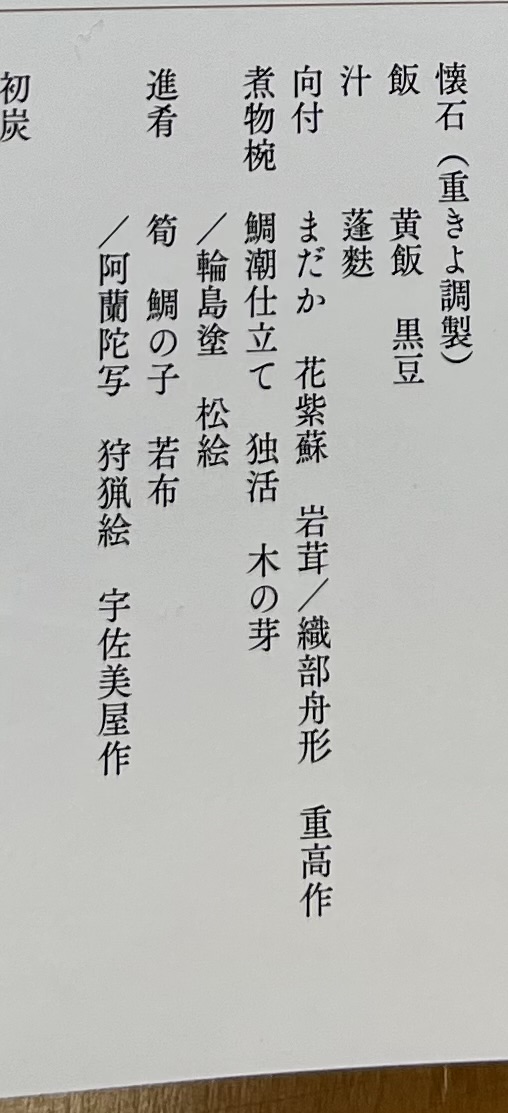 懐石（重きよ調製）
飯　黄飯　黒豆
汁　蓬麩
向付　まだか　花紫蘇　岩茸／織部舟形　重高作
煮物椀　鯛潮仕立て　独活　木の芽
／輪島塗　松絵
進肴　筍　鯛の子　若布
／阿蘭陀写　狩猟絵　宇佐美屋作
初炭